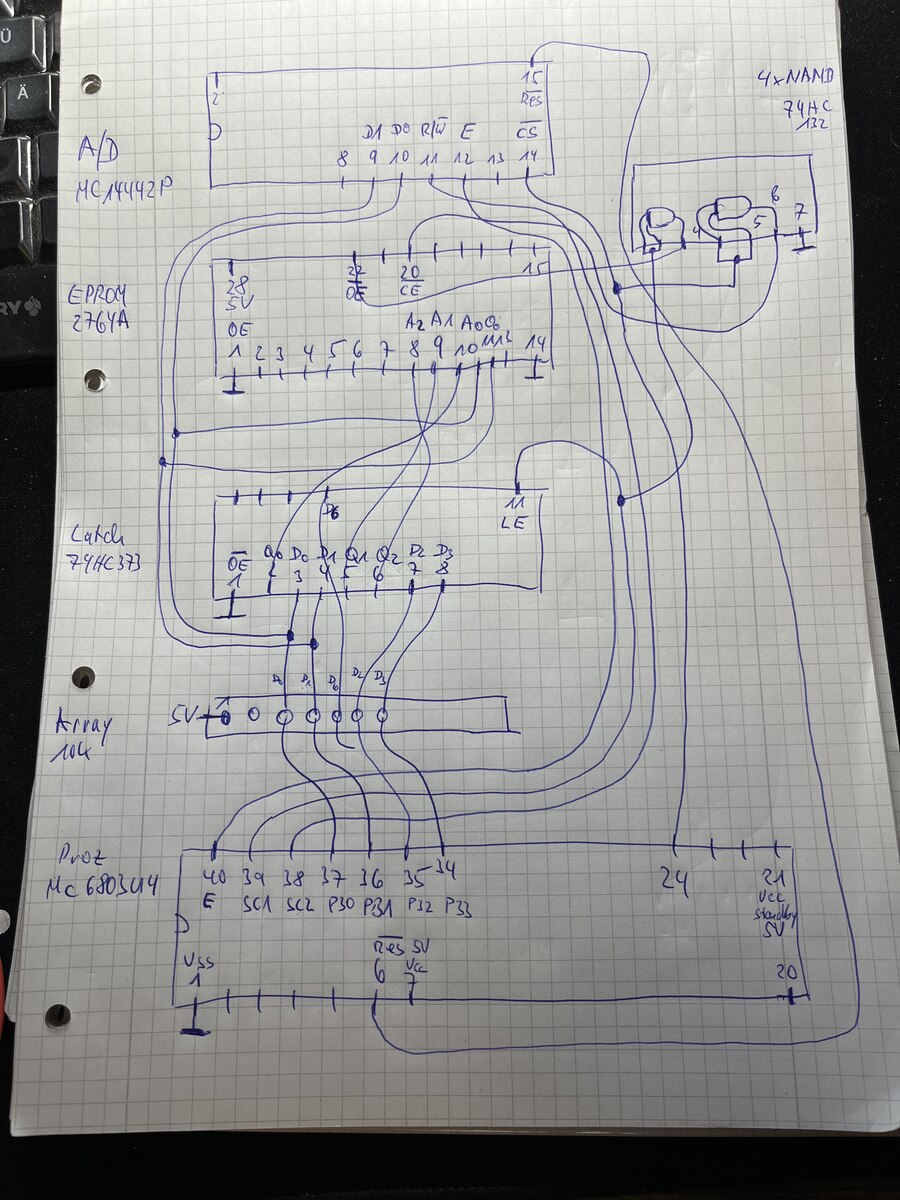 Ü
Ä
RY
4xNAND
74HC
132
A/D
MC14442P
2
15
Res
D1 D0 R/W E CS
8 9 10 11 12 13 14
4 5 6 7
EPROM
2764A
28
5V
OE
22
OE
20
CE
15
A2 A1 A0 O0
1 2 3 4 5 6 7 8 9 10 11 13 14
Latch
74HC373
D6
11
LE
OE Q0 D0 D1 Q1 Q2 D2 D3
1 2 3 4 5 6 7 8
D0 D1 D6 D2 D3
Array
10k
5V
1
Proz
MC6803U4
40 39 38 37 36 35 34
E SC1 SC2 P30 P31 P32 P33
24
21
Vcc
Standby
5V
Vss
1
Res 5V
6
Vcc
7
20